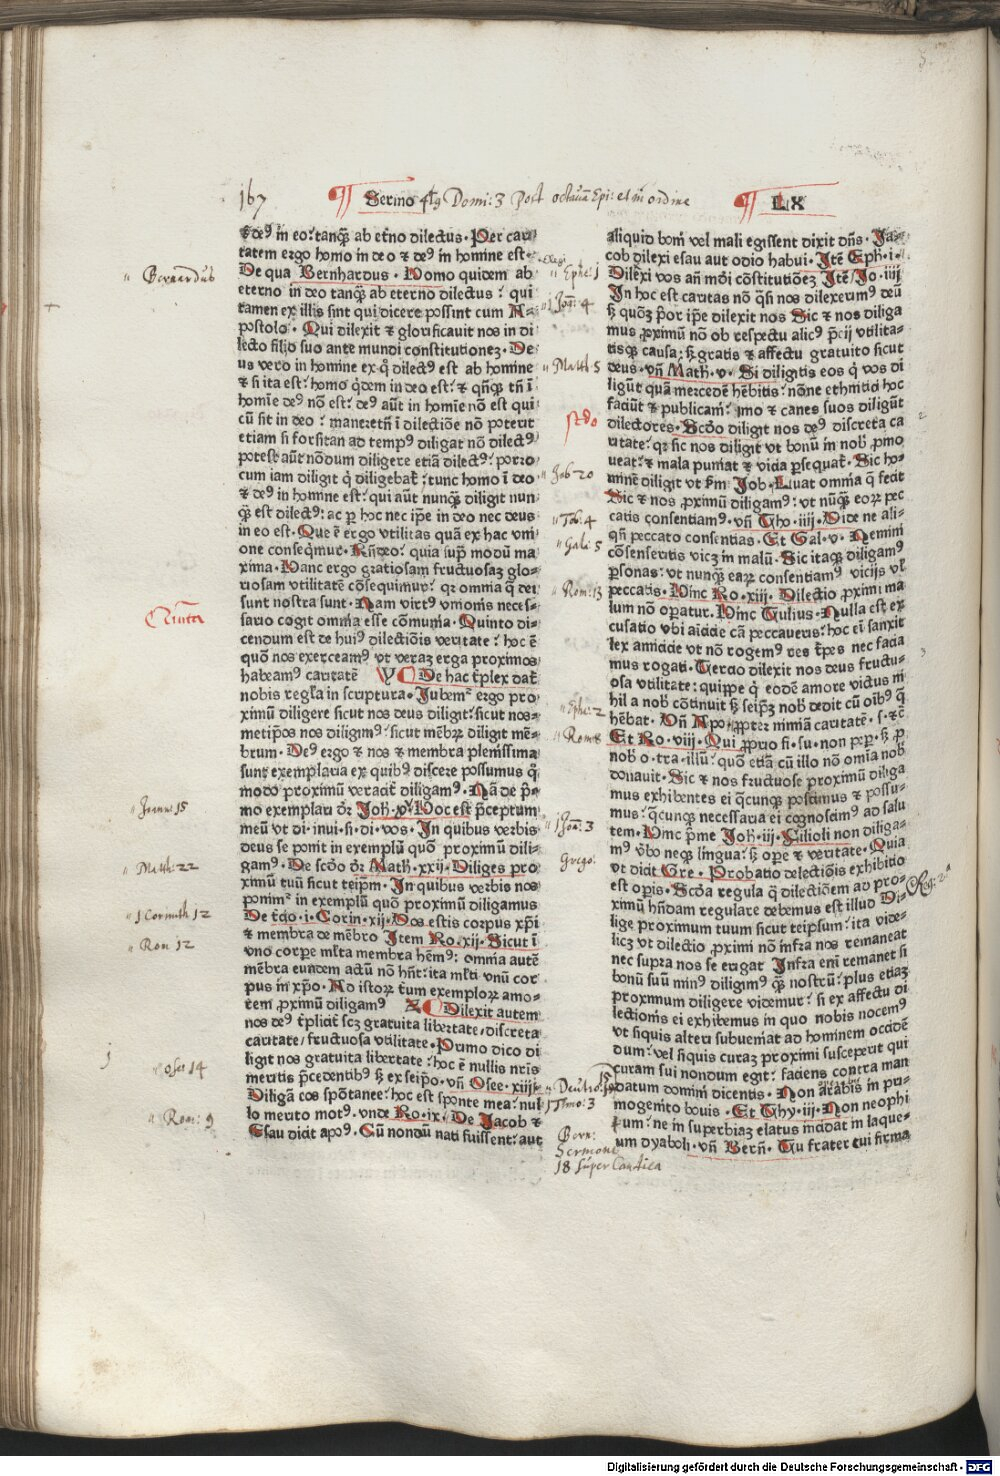 167
Sermo Domi: 3 Post octauā Epi: et in ordine
LX
⁊ deꝰ in eo: tanqȝ ab et̄no dilectus. Per cari
tatem ergo homo in deo ⁊ deꝰ in homine est.
De qua Bernhardus. Homo quidem ab
eterno in deo tanqȝ ab eterno dilectus: qui
tamen ex illis sint qui dicere possint cum A-
postolo. Qui dilexit ⁊ glorificauit nos in di
lecto filio suo ante mundi constitutioneȝ. De
us vero in homine ex q̊ dilectꝰ est ab homine
⁊ si ita est: homo q̇dem in deo est: ⁊ qn̄qȝ tn̄ ī
homīe deꝰ nō est: deꝰ aūt in homīe nō est qui
cū sit in deo: manere tn̄ ī dilectiōe nō poterit
etiam si forsitan ad tempꝰ diligat nō dilectꝰ
potest aūt nōdum diligere etiā dilectꝰ: porro
cum iam diligit q̇ diligebat̄: tunc homo ī deo
⁊ deꝰ in homine est: qui aūt nunqȝ diligit nun
qȝ est dilectꝰ: ac ꝑ hoc nec ip̄e in deo nec deus
in eo est. Que ē ergo vtilitas quā ex hac vni
one conseq̇mur. Rn̄deo: quia sup̄ modū ma
xima. Hanc ergo gratiosam fructuosaȝ glo
riosam vtilitatē cōsequimur: qr omnia q̄ dei
sunt nostra sunt. Nam virtꝰ vnionis neces-
sario cogit omnia esse cōmunia. Quinto di-
cendum est de huiꝰ dilectiōis veritate: hoc ē
quō nos exerceamꝰ vt veraȝ erga proximos
habeamꝰ caritatē Y De hac t̄plex dat̄
nobis regl̄a in scriptura. Jubemr̄ ergo pro
ximū diligere sicut nos deus diligit: sicut nos-
metip̄os nos diligimꝰ: sicut mēbrȝ diligit mē-
brum. Deꝰ ergo ⁊ nos ⁊ membra plenissima
sunt exemplaria ex quibꝰ discere possumus q̊
modo proximū veracit̄ diligamꝰ. Nā de p̄-
mo exemplari dr̄ Joh. xv. Hoc est p̄ceptum
meū vt di. inui. si. di. vos. In quibus verbis
deus se ponit in exemplū quō proximū dili-
gamꝰ. De scd̄o dr̄ Math. xxij. Diliges pro
ximū tuū sicut teip̄m. In quibus verbis nos
ponimr̄ in exemplū quō proximū diligamus
De t̄cio .i. Corin. xij. Uos estis corpus xp̄i
⁊ membra de mēbro Item Ro. xij. Sicut ī
vno corpe ml̄ta membra hēmꝰ: omnia autē
mēbra eundem actū nō hn̄t: ita ml̄ti vnū cor
pus in xp̄o. Ad istorꝝ t̄um exemplorꝝ amo-
rem ꝓximū diligamꝰ Z Dilexit autem
nos deꝰ t̄plicit̄ scȝ gratuita libertate/discreta
caritate/fructuosa vtilitate. Primo dico di
ligit nos gratuita libertate: hoc ē nullis nr̄is
meritis p̄cedentibꝰ sȝ ex seip̄o. vn̄ Osee. xiiij.
Diligā eos spōtanee: hoc est sponte mea: nul
lo merito motꝰ. vnde Ro. ix. De Jacob ⁊
Esau dicit apoꝰ. Cū nondū nati fuissent: aut
aliquid boni vel mali egissent dixit dn̄s. Ja-
cob dilexi esau aut odio habui. Itē Eph. i.
Dilexi vos an̄ mōi cōstitutiōeȝ Itē Jo. iiij
In hoc est caritas nō q̄si nos dilexerimꝰ deū
sȝ quōȝ p̄or ip̄e dilexit nos Sic ⁊ nos diliga
mus ꝓximū nō ob respectu alicꝰ p̄cij vtilita-
tisqȝ causa: sȝ gratis ⁊ affectu gratuito sicut
deus. vn̄ Math. v. Si diligitis eos q̇ vos di
ligūt quā mercedē hēbitis: nōne ethnici hoc
faciūt ⁊ publicani: imo ⁊ canes suos diligūt
dilectores. Scd̄o diligit nos deꝰ discreta ca
ritate: qr sic nos diligit vt bonū in nob̄ ꝓmo
ueat: ⁊ mala puniat ⁊ vicia ꝑsequat̄. Sic ho-
minē diligit vt fm Job. Liuat omnia q̄ fecit
Sic ⁊ nos ꝓximū diligamꝰ: vt nūq̄ȝ eorꝝ pec
catis consentiamꝰ. vn̄ Tho. iiij. Vide ne ali-
qn̄ peccato consentias. Et Gal. v. Nemini
cōsenseritis viciȝ in malū. Sic itaqȝ diligamꝰ
ꝑsonas: vt nunqȝ earꝝ consentiamꝰ vicijs vl̄
peccatis. Hinc Ro. xiij. Dilectio ꝓximi ma
lum nō oꝑatur. Hinc Tulius. Nulla est ex
cusatio vbi aīcicie cā peccaueris: hoc ei sanxit
lex amicicie vt nō rogemꝰ res t̄pes nec facia
mus rogati. Tercio dilexit nos deus fructu-
osa vtilitate: quippe q̇ eodē amore victus ni
hil a nob̄ cōtinuit sȝ seip̄ȝ nob̄ dedit cū oībꝰ q̄
hēbat. Vn̄ Apo. ꝓpter nimiā caritatē. s. ⁊c̄
Et Ro. viij. Qui ꝓprio fi. su. non peꝑ. sȝ ꝓ
nob̄ o. tra. illū: quō etiā cū illo nō omīa nob̄
donauit. Sic ⁊ nos fructuose proximū diliga
mus exhibentes ei q̄cunqȝ possimus ⁊ possu-
mus: q̄cunqȝ necessaria ei cognoscimꝰ ad salu
tem. Hinc p̄me Joh. iij. Filioli non diliga-
mꝰ v̄bo neqȝ lingua: sȝ oꝑe ⁊ veritate. Quia
vt dicit Gre. Probatio delectiōis exhibitio
est opis. Scd̄a regula q̄ dilectiōem ad pro-
ximū hn̄dam regulare debemus est illud Di-
lige proximum tuum sicut teipsum: ita vide-
licȝ vt dilectio ꝓximi nō infra nos remaneat
nec supra nos se erigat Infra eni remanet si
bonū suū minꝰ diligimꝰ qȝ nostrū: plus etiaȝ
proximum diligere videmur: si ex affectu di
lectionis ei exhibemus in quo nobis nocemꝰ
vt siquis alteri subueniat ad hominem occidē
dum: vel siquis curaȝ proximi susceperit qui
curam sui nondum egit: faciens contra man
datum domini dicentis. Non arabis in pri-
mogenito bouis. Et Thy. iij. Non neophi
tum: ne in superbiaȝ elatus incidat in laque-
um dyaboli. vn̄ Bern̄. Tu frater cui firma
Bernardus
Quinta
Joann: 15
Matth: 22
1 Corinth 12
Rom 12
1
Osee 14
Rom: 9
Ephe: 1
1 Joā: 4
Matth 5
Job 20
Tob: 4
Gala: 5
Rom: 13
Ephe: 2
Rom 8
1 Joā: 3
Grego:
Reg: 2ᵃ
2
3
Deutro: 15
1 Timo: 3
Bern:
Sermone
18 super Cantica
Digitalisierung gefördert durch die Deutsche Forschungsgemeinschaft - DFG